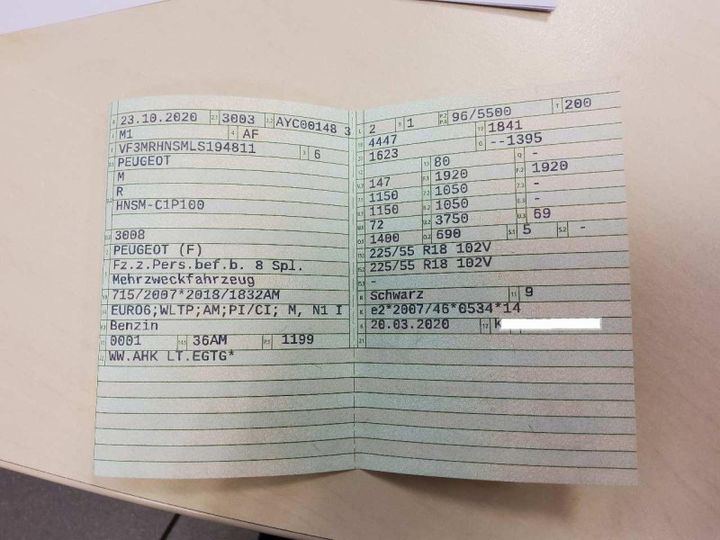 23.10.2020 3003 AYC00148 3
M1 AF
VF3MRHNSMLS194811 6
PEUGEOT
M
R
HNSM-C1P100
3008
PEUGEOT (F)
Fz.z.Pers.bef.b. 8 Spl.
Mehrzweckfahrzeug
715/2007*2018/1832AM
EURO6;WLTP;AM;PI/CI; M, N1 I
Benzin
0001 36AM 1199
WW.AHK LT.EGTG*
2 1 96/5500 200
4447 1841
1623 --1395
80 -
147 1920 1920
1150 1050 -
1150 1050 -
72 3750 69
1400 690 5 -
225/55 R18 102V
225/55 R18 102V
-
Schwarz 9
e2*2007/46*0534*14
20.03.2020 K